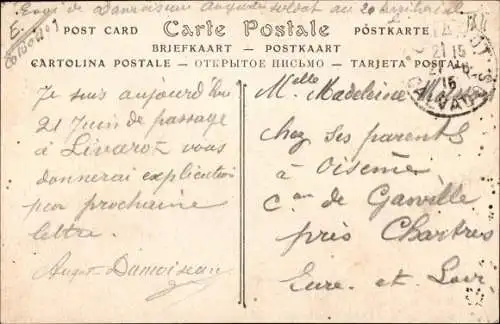 Envoi de Damoiseau Auguste soldat au 20
E.
Carte Postale
POST CARD
POSTKARTE
BRIEFKAART — POSTKAART
CARTOLINA POSTALE — ОТКРЫТОЕ ПИСЬМО — TARJETA POSTAL
21 15
CALVADOS
Je suis aujourd'hui
21 Juin de passage
à Livarot vous
donnerai explication
par prochaine
lettre.
Augte Damoiseau
Melle Madeleine
chez ses parents
à Oisème
Cne de Gasville
près Chartres
Eure et Loir